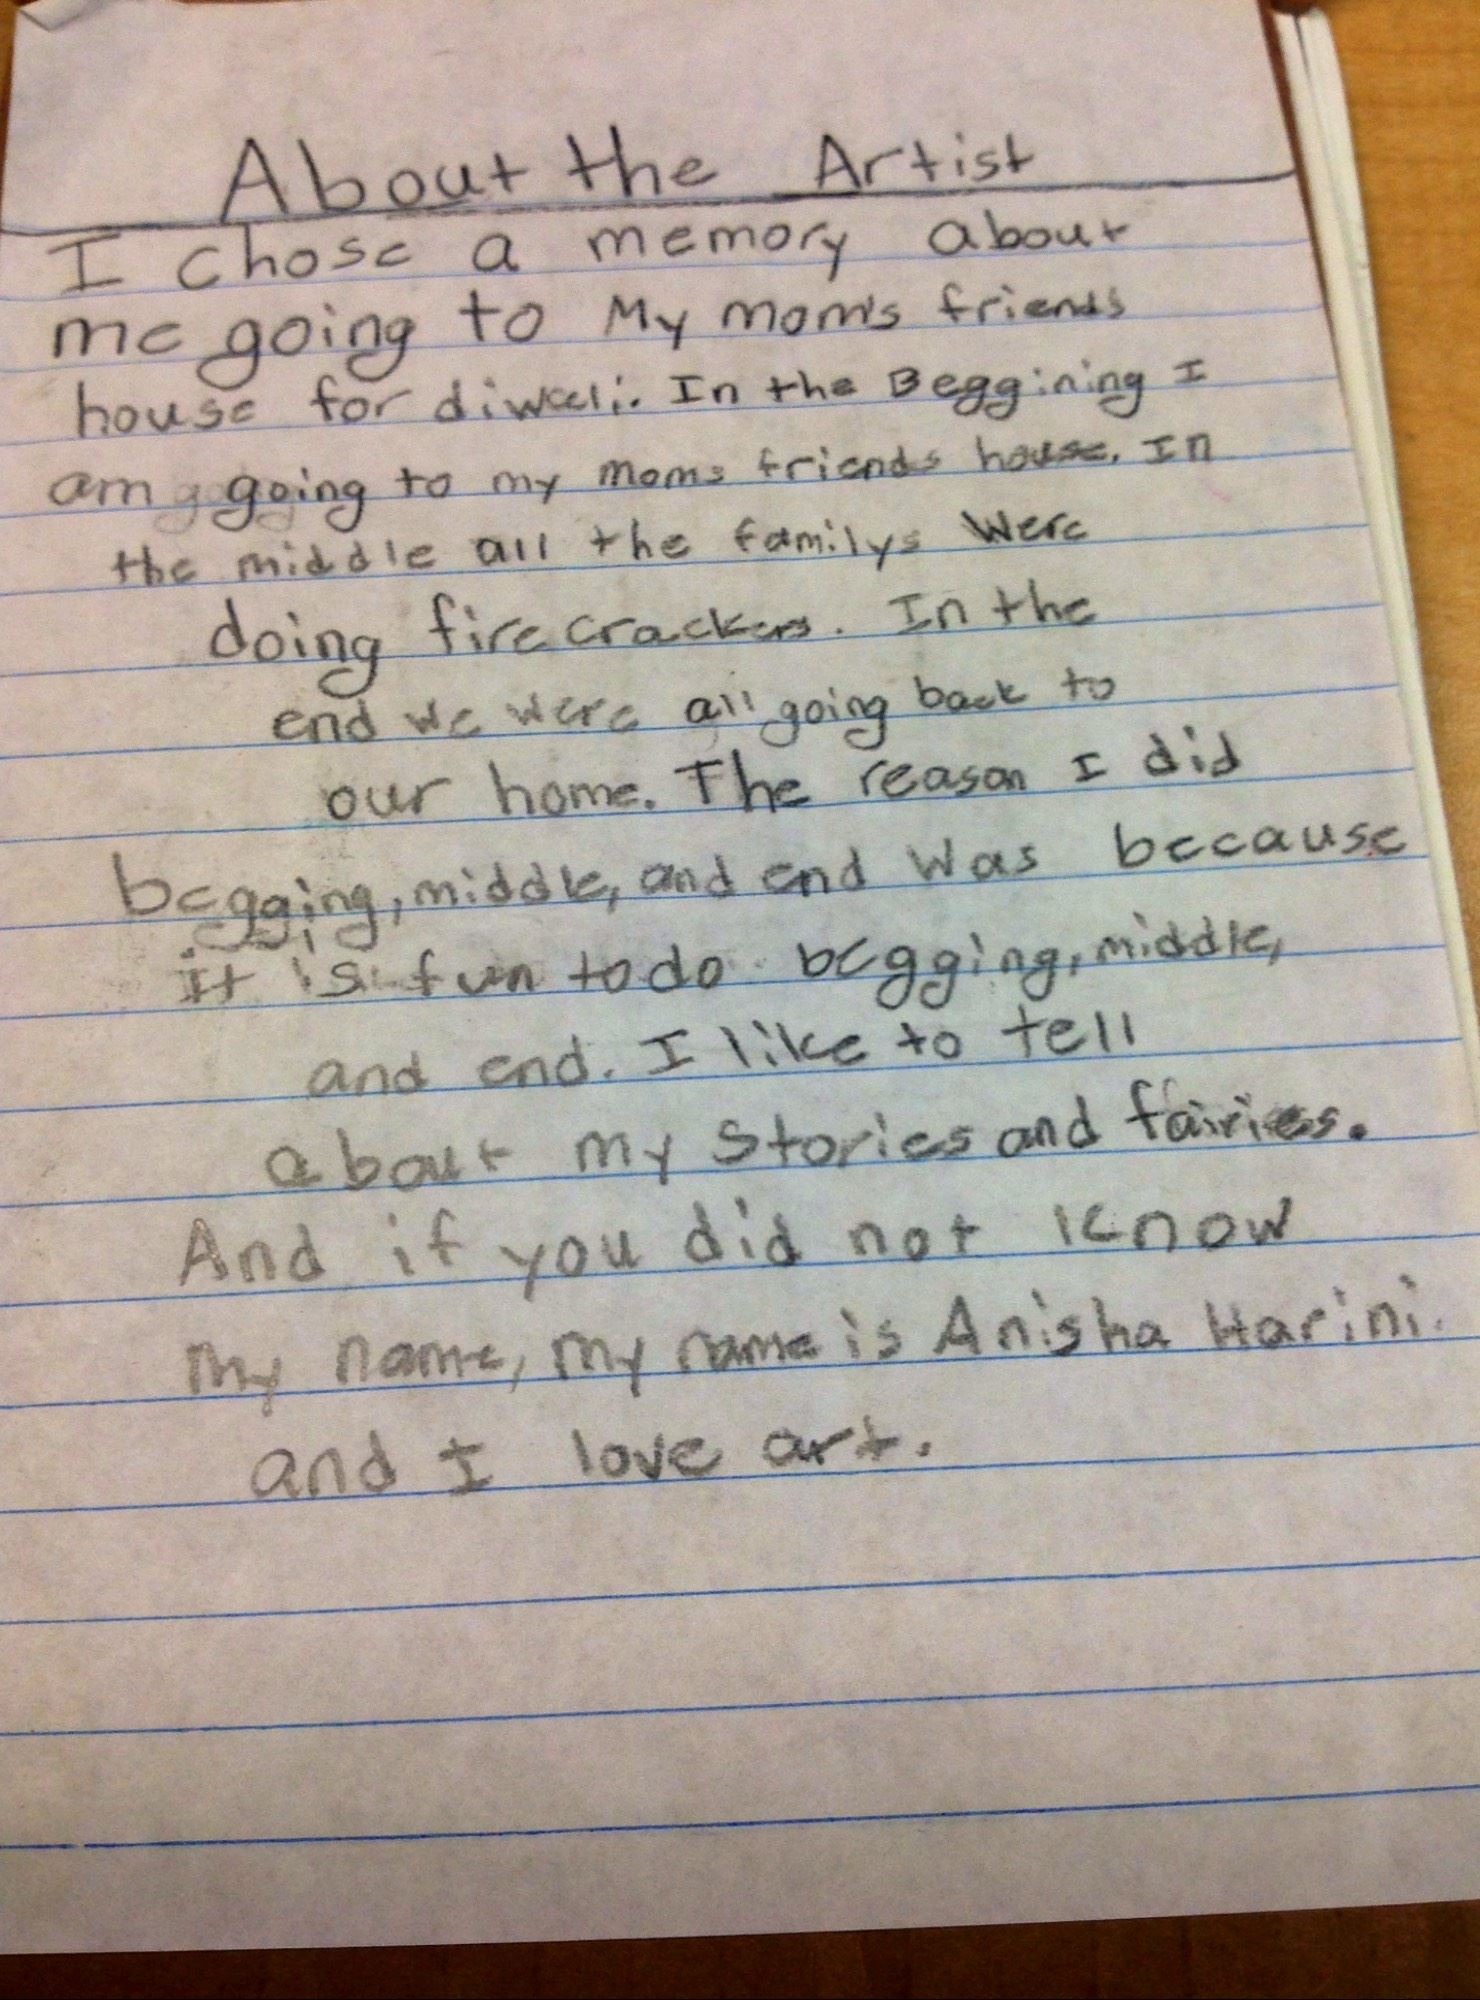 About the Artist
I chose a memory about
me going to My mom's friends
house for diwali. In the Beggining I
am going to my moms friends house. In
the middle all the familys Were
doing fire crackers. In the
end we were all going back to
our home. The reason I did
begging, middle, and end was because
it is fun to do begging, middle,
and end. I like to tell
about my stories and fairies.
And if you did not know
my name, my name is Anisha Harini.
and I love art.